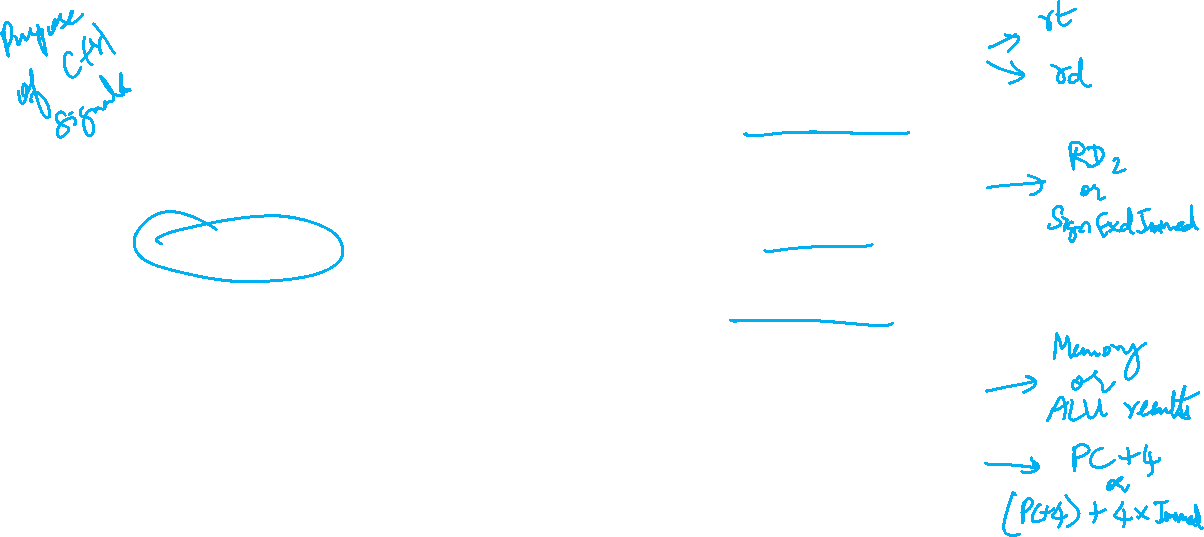 Purpose
of Ctrl
signals
rt
rd
RD2
or
Sign Exd Immed
Memory
or
ALU results
PC+4
or
(PC+4) + 4 × Immed